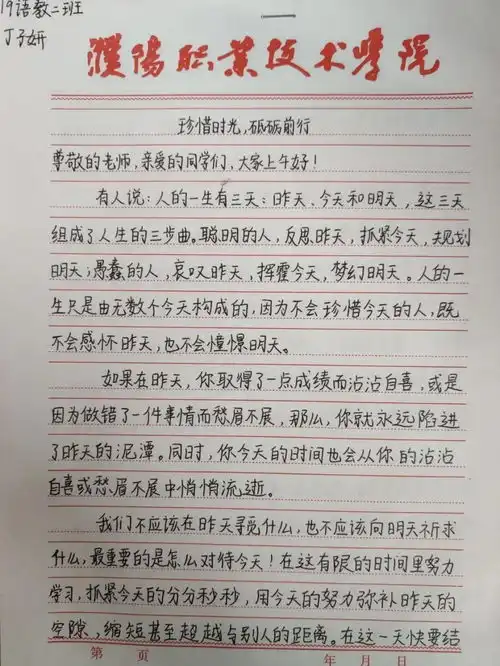 19语教二班
丁子妍
濮阳职业技术学院
珍惜时光，砥砺前行
尊敬的老师，亲爱的同学们，大家上午好！
有人说：人的一生有三天：昨天、今天和明天，这三天
组成了人生的三步曲。聪明的人，反思昨天，抓紧今天，规划
明天；愚蠢的人，哀叹昨天，挥霍今天，梦幻明天。人的一
生只是由无数个今天构成的，因为不会珍惜今天的人，既
不会感怀昨天，也不会憧憬明天。
如果在昨天，你取得了一点成绩而沾沾自喜，或是
因为做错了一件事情而愁眉不展，那么，你就永远陷进
了昨天的泥潭。同时，你今天的时间也会从你的沾沾
自喜或愁眉不展中悄悄流逝。
我们不应该在昨天寻觅什么，也不应该向明天祈求
什么，最重要的是怎么对待今天！在这有限的时间里努力
学习，抓紧今天的分分秒秒，用今天的努力弥补昨天的
空隙，缩短甚至超越与别人的距离。在这一天快要结
第 页 年 月 日